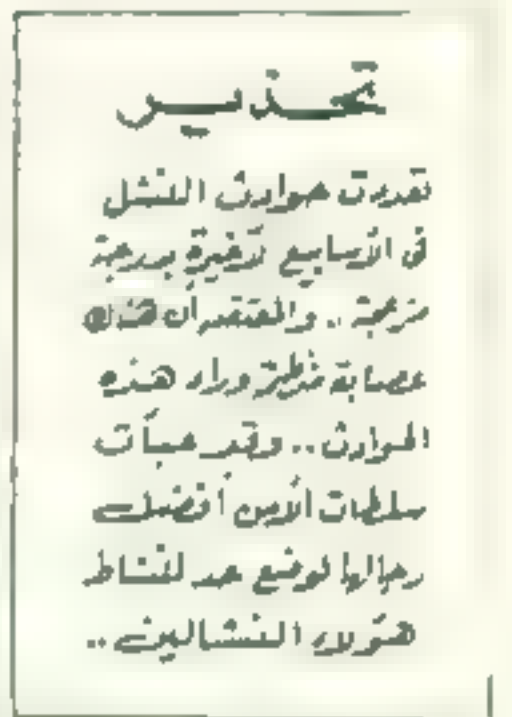 تحذير
تعددت حوادث النشل
فى الأسابيع الأخيرة بدرجة
مزعجة .. والمعتقد أن هناك
عصابة خطيرة وراء هذه
الحوادث .. وقد عبأت
سلطات الأمن أفضل
رجالها لوضع حد لنشاط
هؤلاء النشالين ..